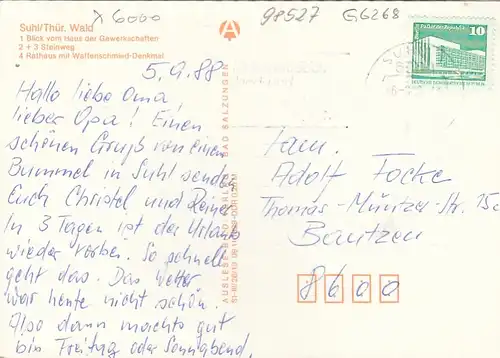 x 6000
98527 G6268
Suhl/Thür. Wald
1 Blick vom Haus der Gewerkschaften
2 + 3 Steinweg
4 Rathaus mit Waffenschmied-Denkmal
5.9.88
Hallo liebe Oma
lieber Opa! Einen
schönen Gruß von einem
Bummel in Suhl senden
Euch Christel und Reiner
In 3 Tagen ist der Urlaub
wieder vorbei. So schnell
geht das. Das Wetter
war heute nicht schön.
Also dann machts gut
bis Freitag oder Sonnabend.
BAD SALZUNGEN
10
Fam.
Adolf Focke
Thomas-Müntzer-Str. 15c
Bautzen
8600